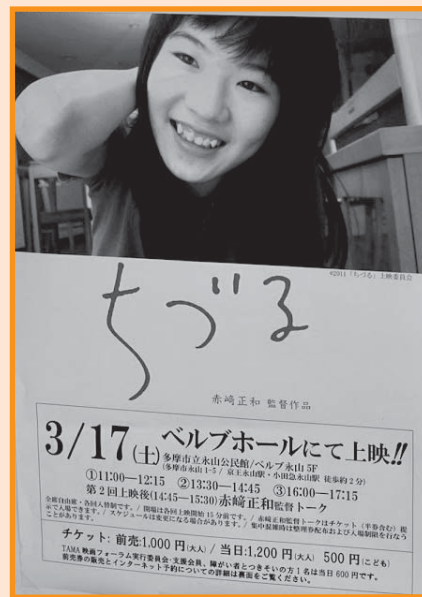 ©2011「ちづる」上映委員会
ちづる
赤﨑正和 監督作品
3/17(土) ベルブホールにて上映!!
多摩市立永山公民館/ベルブ永山 5F
(多摩市永山1-5 / 京王永山駅・小田急永山駅 徒歩約2分)
①11:00—12:15 ②13:30—14:45 ③16:00—17:15
第2回上映後(14:45—15:30)赤﨑正和監督トーク
全席自由席・各回入替制です。/ 開場は各回上映開始15分前です。/ 赤﨑正和監督トークはチケット(半券含む)提
示で入場できます。/ スケジュールは変更になる場合があります。/ 集中混雑時は整理券配布および入場制限を行なう
ことがあります。
チケット: 前売:1,000円(大人) / 当日:1,200円(大人) 500円(こども)
TAMA映画フォーラム実行委員会・支援会員、障がい者とつきそいの方1名は当日600円です。
前売券の販売とインターネット予約についての詳細は裏面をご覧ください。